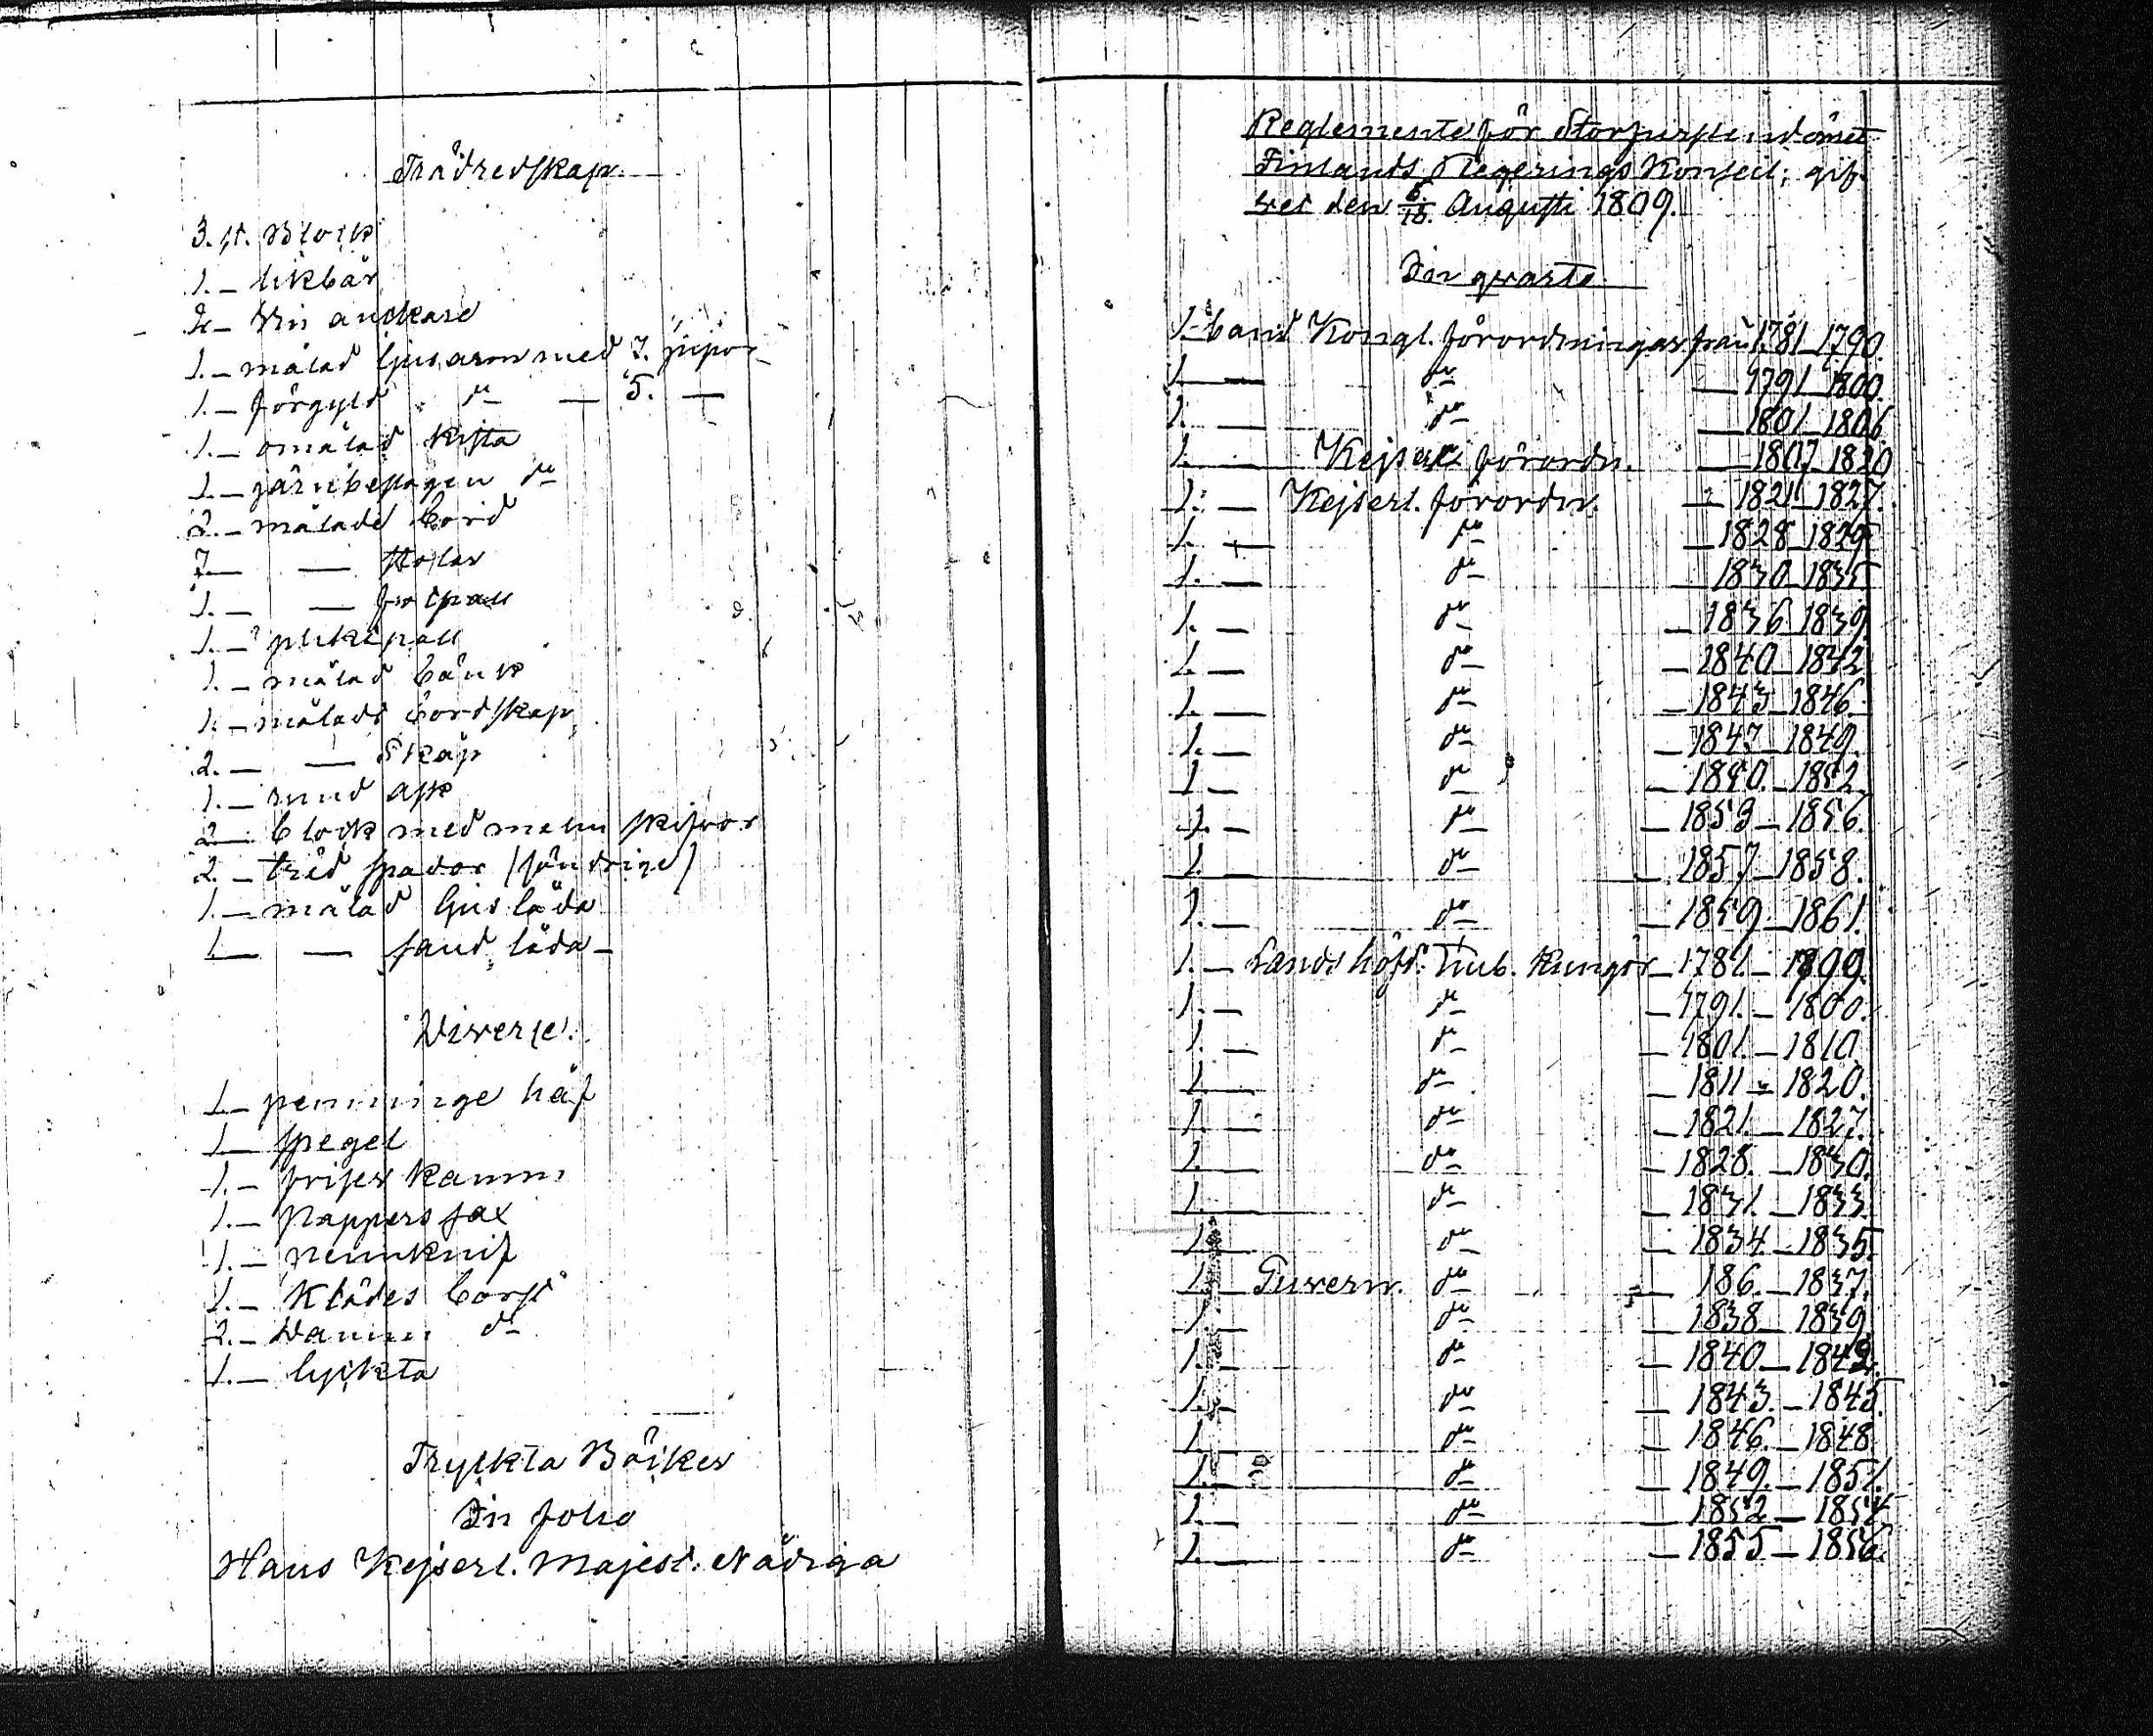 Trädredskap.
3. st. Block
1. — likbår
2 — Vin anckare
1. — målad ljusarm med 7. pipor
1. — förgyld do — 5. —
1. — omålad kista
1. — järnbeslagen do
2. — målade bord
7 — — stolar
1. — — fotpall
1. — pliktpall
1. — målad bänk
1. — måladt bordskap
2. — — Skåp
1. — rund ask
2 — block med malm skifvor
2. — träd spador (söndrige)
1. — målad ljus låda
1. — — sand låda —
Diverse.
1 — penninge håf
1 — spegel
1. — friser kamm
1. — Pappers sax
1. — pennknif
1. — Klädes borst
2. — Damm do
1. — lyckta
Tryckta Böcker
In folio
Hans Kejserl. Majest. Nådiga
Reglemente för Storfurstendömet
Finlands Regerings Konseil, gif-
vet den 6/18. Augusti 1809.
In qvarto.
1 — band Kongl. förordningar från 1781 — 1790.
1. — do — 1791 — 1800.
1. — do — 1801 — 1806
1. — Kejserl. förordn. — 1807 — 1820
1. — Kejserl. förordn. — 1821 — 1827.
1. — do — 1828 — 1829
1. — do — 1830 — 1835
1. — do — 1836 — 1839
1. — do — 1840 — 1842
1. — do — 1843 — 1846.
1. — do — 1847. — 1849.
1 — do — 1850. — 1852
1. — do — 1853 — 1856.
1. — do — 1857 — 1858.
1. — do — 1859 — 1861.
1. — Landshöfd. Emb. Kungör — 1781. —
1. — do — 1791. — 1800.
1. — do — 1801. — 1810
1 — do — 1811 — 1820.
1. — do — 1821. — 1827.
1. — do — 1828. — 1830.
1. — do — 1831. — 1833.
1. — do — 1834 — 1835.
1. — Guvern. do — 186. — 1837.
1. — do — 1838 — 1839
1. — do — 1840 — 1842.
1. — do — 1843. — 1845
1. — do — 1846. — 1848
1. — do — 1849. — 1851.
1. — do — 1852 — 1854.
1. — do — 1855 — 1856.